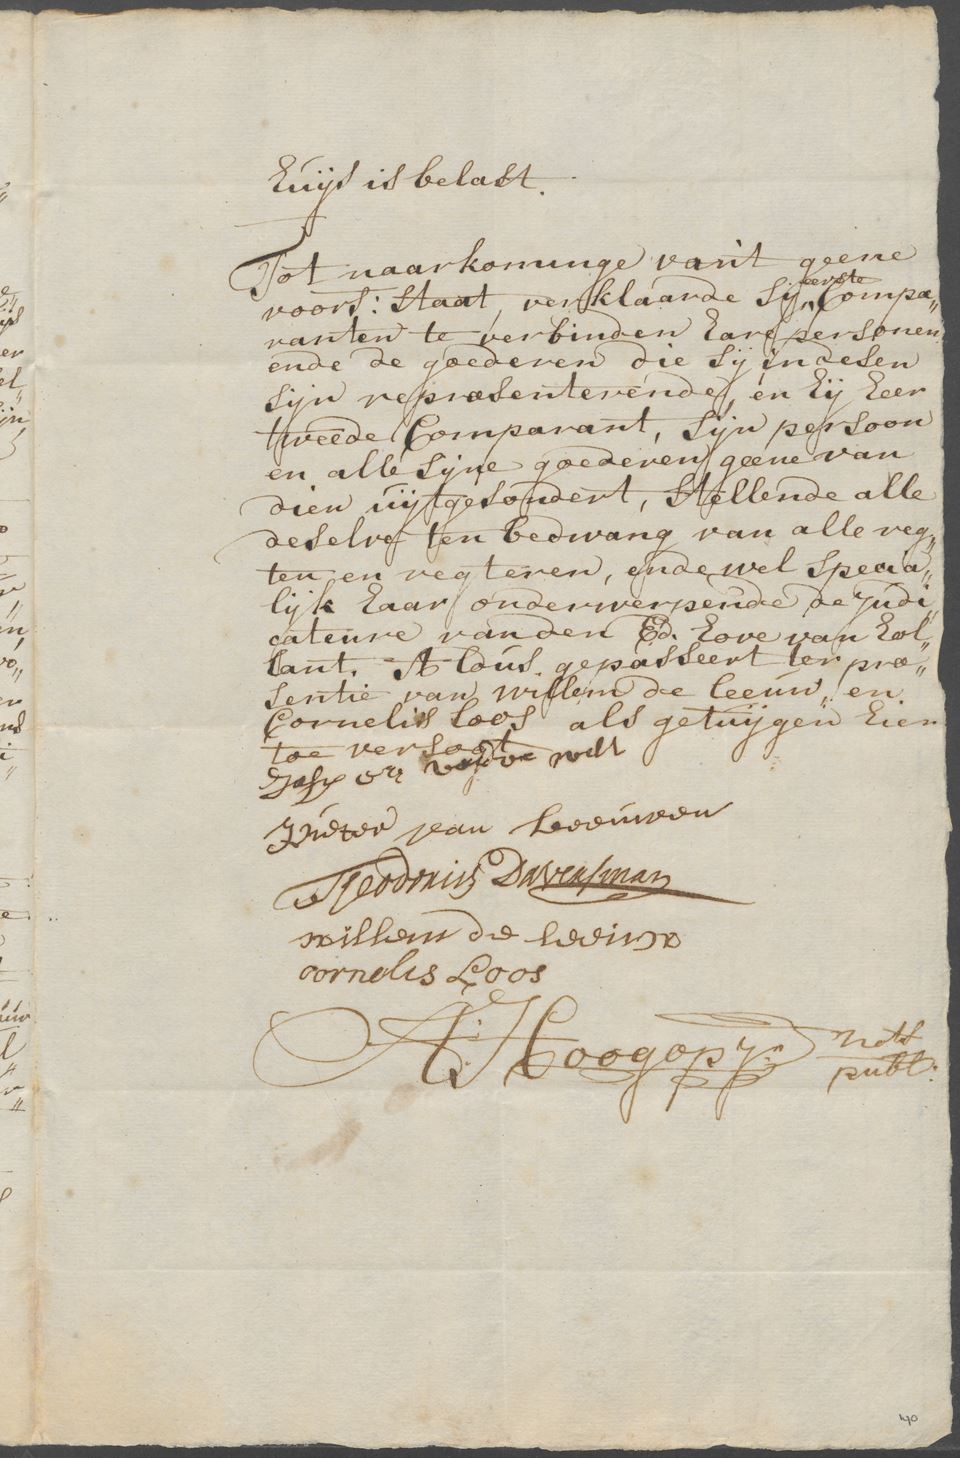 huijs is belast.
Tot naarkominge van't geene
voors: staat, verklaarde sij eerste Compa„
ranten te verbinden hare personen
ende de goederen die sij in desen
sijn repræsenterende, en hij heer
tweede Comparant, sijn persoon
en alle sijne goederen geene van
dien uijtgesondert, stellende alle
deselve ten bedwang van alle reg„
ten en regteren, ende wel specia„
lijk haar onderwerpende de Judi„
cateure van den Ed. hove van hol„
lant. Aldus gepasseert ter præ„
sentie van Willem de leeuw, en
Cornelis Loos als getuijgen hier
toe versogt
de wilt
Pieter van Leeuwen
Theodorus
willem de leeuw
cornelis Loos
A: Hoog
nots
publ:
140